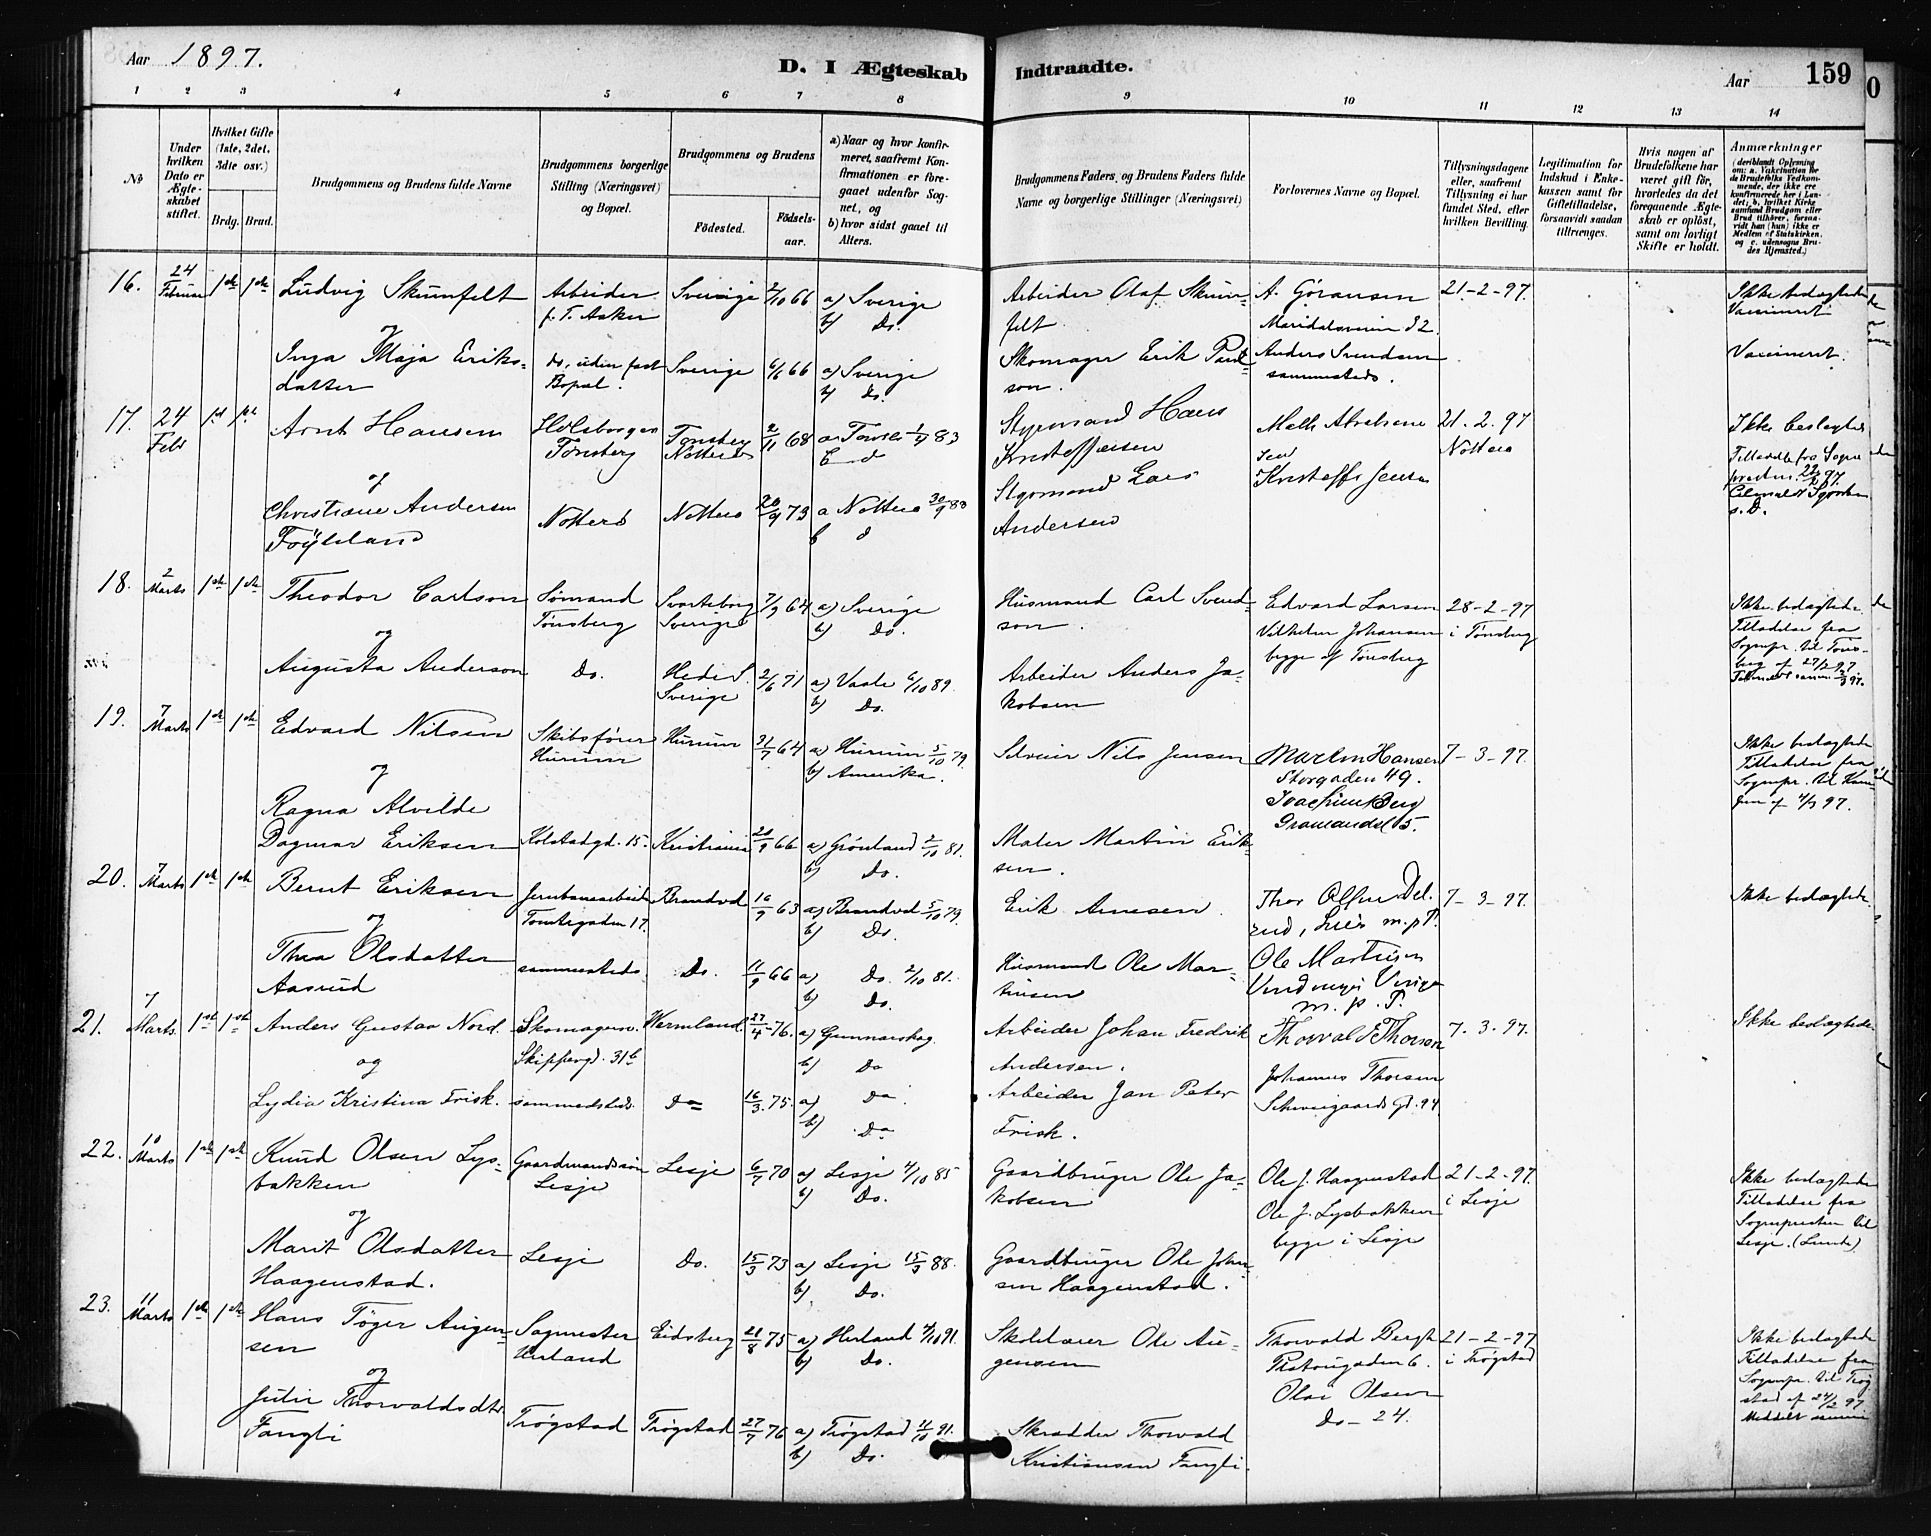 Aar 1897.
D. I Ægteskab Indtraadte.
Aar 159
1 2 3 4 5 6 7 8 9 10 11 12 13 14
No
Under hvilken Dato er Ægteskabet stiftet.
Hvilket Gifte (1ste, 2det, 3die osv.)
Brdg. Brud.
Brudgommens og Brudens fulde Navne
Brudgommens borgerlige Stilling (Næringsvei) og Bopæl.
Brudgommens og Brudens
Födested.
Födsels-aar.
a) Naar og hvor konfirmeret, saafremt Konfirmationen er foregaaet udenfor Sognet, og
b) hvor sidst gaaet til Alters.
Brudgommens Faders og Brudens Faders fulde Navne og borgerlige Stillinger (Næringsvei)
Forlovernes Navne og Bopæl.
Tillysningsdagene eller, saafremt Tillysning ei har fundet Sted, efter hvilken Bevilling.
Legitimation for Indskud i Enkekassen samt for Giftetilladelse, forsaavidt saadan tiltrænges.
Hvis nogen af Brudefolkene har været gift för, hvorledes da det foregaaende Ægteskab er oplöst, samt om lovligt Skifte er holdt.
Anmærkninger
(deriblandt Oplysning om: a. Vakcination for de Brudefolks Vedkommende, der ikke ere konfirmerede her i Landet; b. hvilket Kirkesamfund Brudgom eller Brud tilhörer, forsaavidt han (hun) ikke er Medlem af Statskirken, og c. udensogns Brudes Hjemsted.)
16. 24 Februar 1ste 1ste Ludvig Skumfelt Arbeider p.T. Asker Sverige 2/10 66 a) Sverige b) Do. Arbeider Olaf Skumfelt A. Göransen Maridalsveien 32. 21-2-97. Ikke beslægtede Vaccineret
og
Inga Maja Eriksdatter do, uden fast Bopæl. Sverige 6/6 66 a) Sverige b) do. Skomager Erik Anders Svendsen sammesteds. Vaccineret.
17. 24 Feb Arnt Hansen Tønsberg 2/11 68 83 Styrmand Hans Kristoffersen 21.2.97 Nötterö Ikke beslægted
og
Christiane Andersen Föÿnland Nötterö Nötterö 20/9 73 a Nötterö 30/9 88 Styrmand Lars Andersen
18. 2 Marts 1ste 1ste Theodor Carlson Sömand Tönsberg Svarteborg Sverige 7/9 64 a) Sverige b) Do. Husmand Carl Svendson. Edvard Larsen Vilhelm Johansen begge af Tönsberg 28-2-97 i Tönsberg Ikke beslægtede Tilladelse fra Sognepr. til Tönsberg af 27/2 97.
og
Augusta Anderson Do. Hede S. Sverige 2/6 71 a) Vaale 6/10 89. b) Do. Arbeider Anders Jakobsen
19. 7 Marts 1ste 1ste Edvard Nilsen Skibsförer Hurum Hurum 31/7 64 a) Hurum 5/10 79. b) Amerika. Selveier Nils Jensen Martin Hansen Storgaden 49. Joachim Berg 7-3-97. Ikke beslægtede Tilladelse fra Sognepr. til
og
Ragna Alvilde Dagmar Eriksen Kolstadgd. 15. Kristiania 28/9 66 a) Grönland 2/10 81. b) Do. Maler Martin Eriksen.
20. 7 Marts 1ste 1ste Bernt Eriksen Jernbanearbeider Tomtegaden 17. Brandvold 16/9 63 a) Brandvol 5/10 79. b) Do. Erik Arnesen. Thor 7-3-97. Ikke beslægtede
og
Thea Olsdatter Aasrud sammesteds. Do. 11/9 66 a) Do. 2/10 81. b) Do. Husmand Ole Martinsen Ole Martinsen m.p.P.
21. 7 Marts. 1ste 1ste Anders Gustav Nord. Skomagersv. Skippergd. 31b Wermland 27/4 -76. a) Gunnarskog. b) Do Arbeider Johan Fredrik Andersen. Thorvald Thorsen 7.3.97. Ikke beslægtede
og
Lydia Kristina Frisk. sammesteds. Do 16/3. 75. a) Do. b) Do Arbeider Jan Peter Frisk. Johannes Thorsen Schweigaards Gd. 94
22. 10 Marts 1ste 1ste Knud Olsen Lysbakken Gaardmandssön Lesje Lesje 6/7 70 a) Lesje 4/10 85 b) Do. Gaardbruger Ole Jakobsen Ole J. Haagenstad Ole J. Lysbakken begge i Lesje 21-2-97. i Lesje Ikke beslægtede Tilladelse fra Sognepresten til Lesje.
og
Marit Olsdatter Haagenstad. Lesje Do. 15/3 73 a) Lesje 88. b) Do. Gaardbruger Ole Johnsen Haagenstad.
23. 11 Marts 1ste 1ste Hans Töger Augensen Sagmester Herland Eidsberg 21/8 75 a) Herland 91. b) Do. Skolelærer Ole Augensen Thorvald Bergh 6. 21-2-97 i Trögstad Ikke beslægtede Tilladelse fra Sognepr. til Trögstad af 24/2 97.
og
Julie Thorvaldsdtr. Fangli Trögstad Trögstad 27/7 76 a) Trögstad 11/10 91. b) Do. Skrædder Thorvald Kristiansen Fangli. Olai Olsen Do - 24.